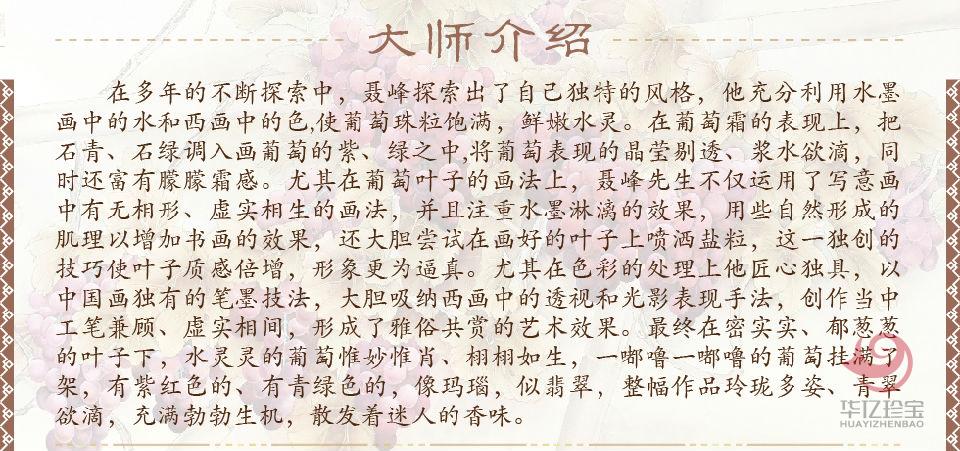 大师介绍
在多年的不断探索中，聂峰探索出了自己独特的风格，他充分利用水墨
画中的水和西画中的色,使葡萄珠粒饱满，鲜嫩水灵。在葡萄霜的表现上，把
石青、石绿调入画葡萄的紫、绿之中,将葡萄表现的晶莹剔透、浆水欲滴，同
时还富有朦朦霜感。尤其在葡萄叶子的画法上，聂峰先生不仅运用了写意画
中有无相形、虚实相生的画法，并且注重水墨淋漓的效果，用些自然形成的
肌理以增加书画的效果，还大胆尝试在画好的叶子上喷洒盐粒，这一独创的
技巧使叶子质感倍增，形象更为逼真。尤其在色彩的处理上他匠心独具，以
中国画独有的笔墨技法，大胆吸纳西画中的透视和光影表现手法，创作当中
工笔兼顾、虚实相间，形成了雅俗共赏的艺术效果。最终在密实实、郁葱葱
的叶子下，水灵灵的葡萄惟妙惟肖、栩栩如生，一嘟噜一嘟噜的葡萄挂满了
架，有紫红色的、有青绿色的，像玛瑙，似翡翠，整幅作品玲珑多姿、青翠
欲滴，充满勃勃生机，散发着迷人的香味。
华亿珍宝
HUAYIZHENBAO